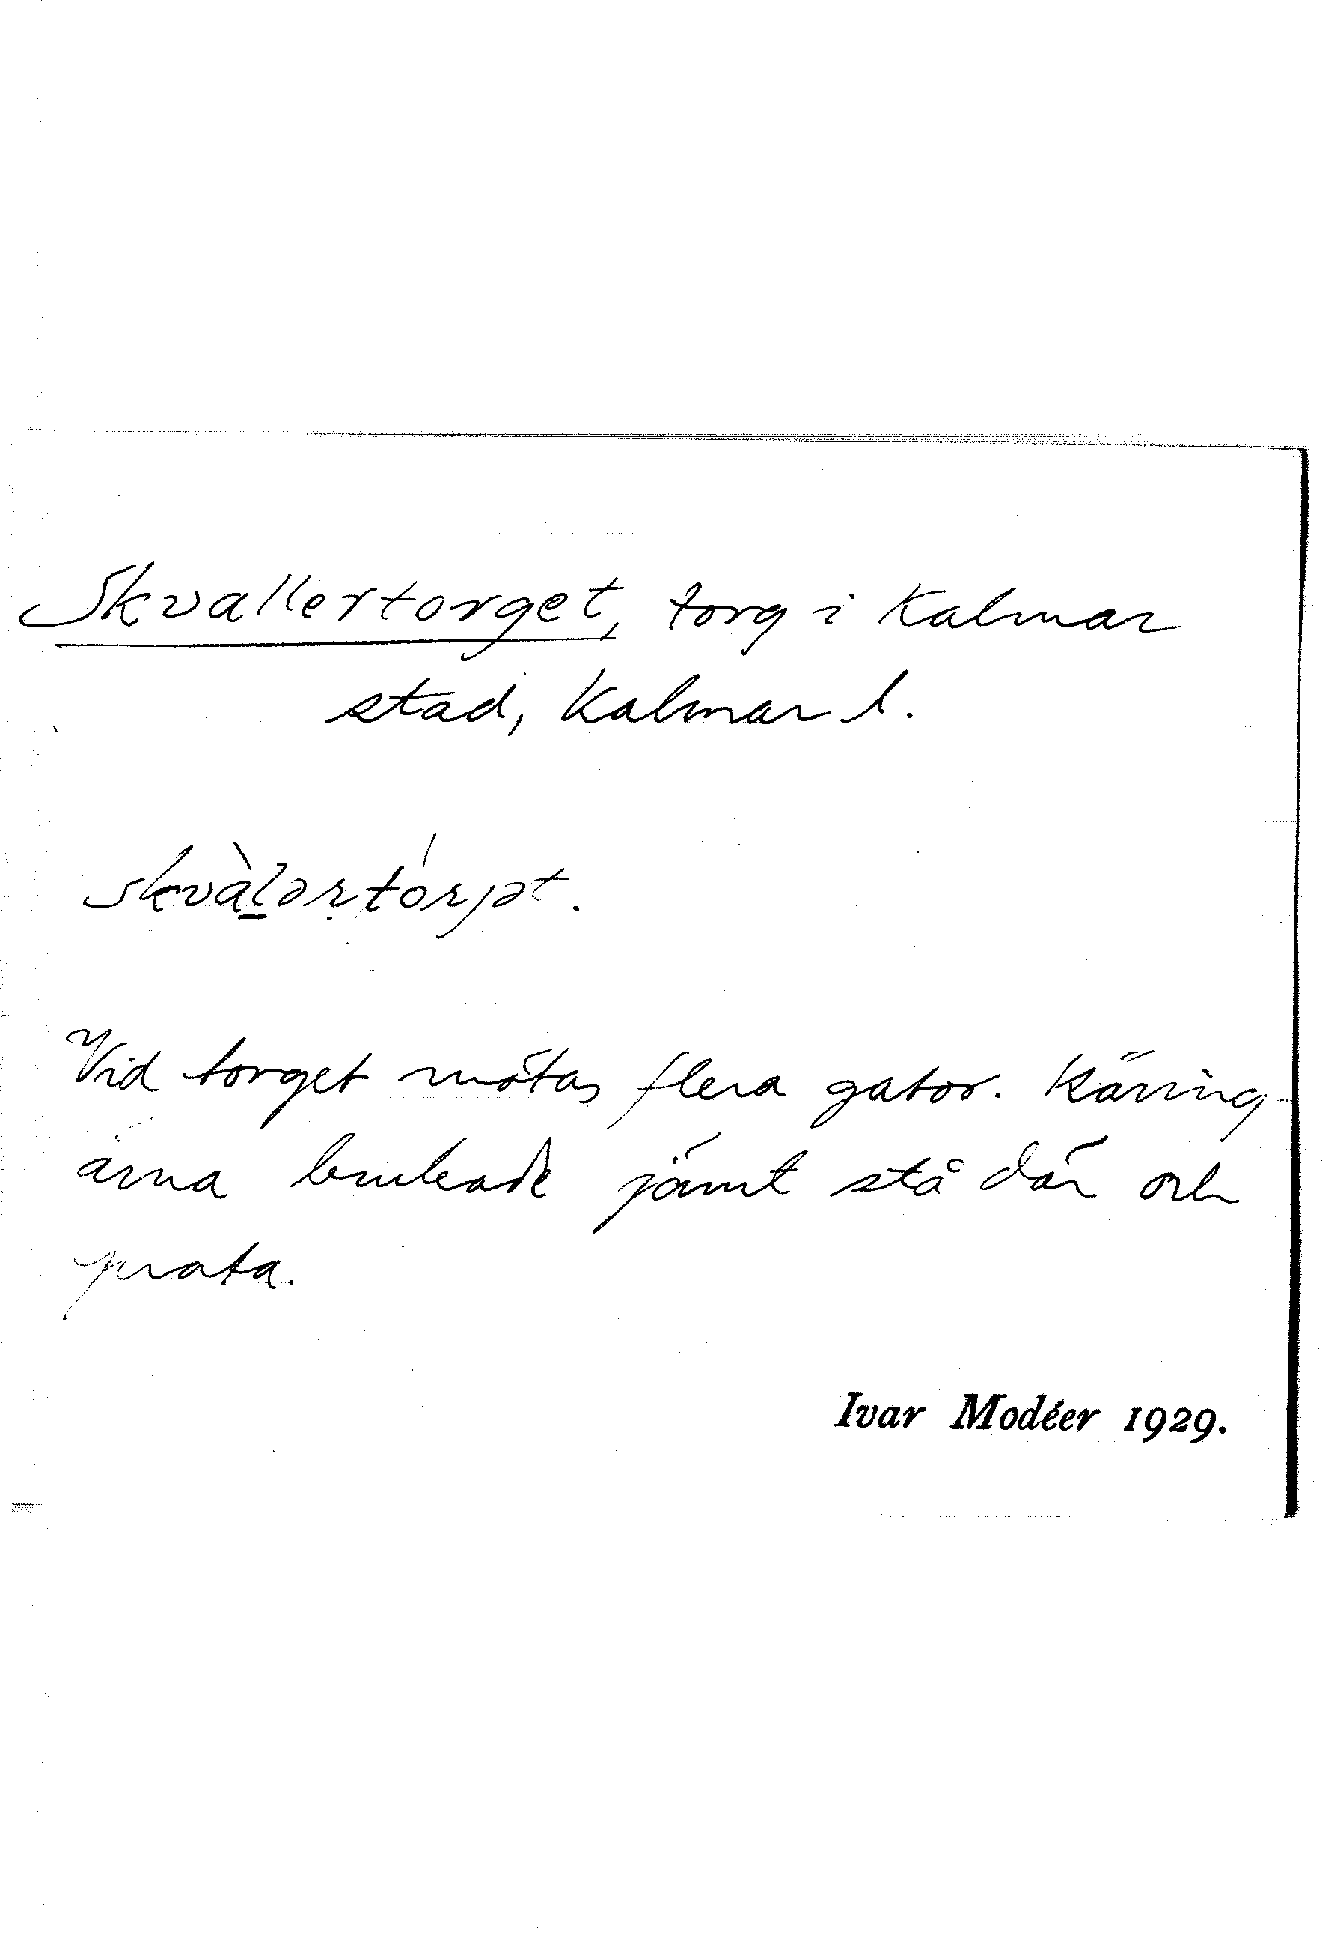 Skvallertorget, torg i Kalmar
stad, Kalmar l.
skvàl̠ərtórjət.
Vid torget mötas flera gator. Käring-
arna brukade jämt stå där och
prata.
Ivar Modéer 1929.